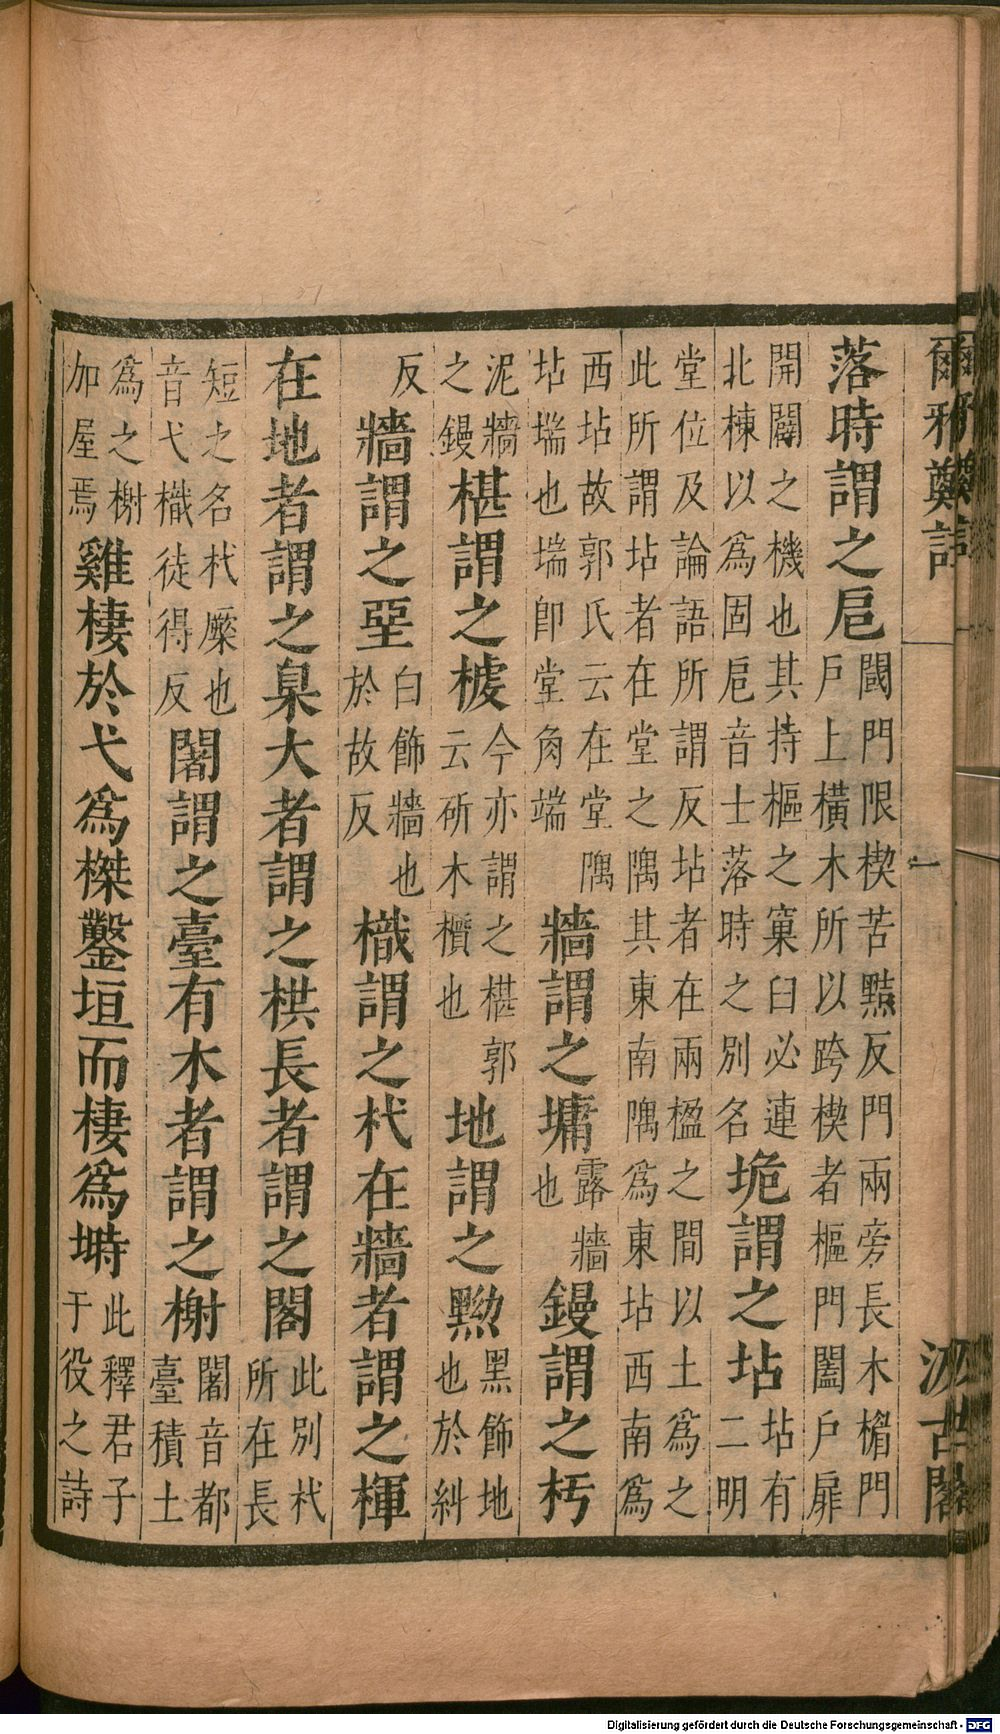 爾雅鄭註 一 汲古閣
落時謂之戺
閾門限楔苦黠反門兩旁長木楣門
戶上橫木所以跨楔者樞門闔戶扉
開闢之機也其持樞之窠臼必連
北棟以爲固戺音士落時之別名
垝謂之坫
坫有
二明
堂位及論語所謂反坫者在兩楹之間以土爲之
此所謂坫者在堂之隅其東南隅爲東坫西南爲
西坫故郭氏云在堂隅
坫㙐也㙐卽堂角端
牆謂之墉
露牆
也
鏝謂之杇
泥牆
之鏝
椹謂之榩
今亦謂之椹郭
云斫木櫍也
地謂之黝
黑飾地
也於糾
反
牆謂之堊
白飾牆也
於故反
樴謂之杙在牆者謂之楎
在地者謂之臬大者謂之栱長者謂之閣
此別杙
所在長
短之名杙橜也
音弋樴徒得反
闍謂之臺有木者謂之榭
闍音都
臺積土
爲之榭
加屋焉
雞棲於弋爲榤鑿垣而棲爲塒
此釋君子
于役之詩
Digitalisierung gefördert durch die Deutsche Forschungsgemeinschaft - DFG